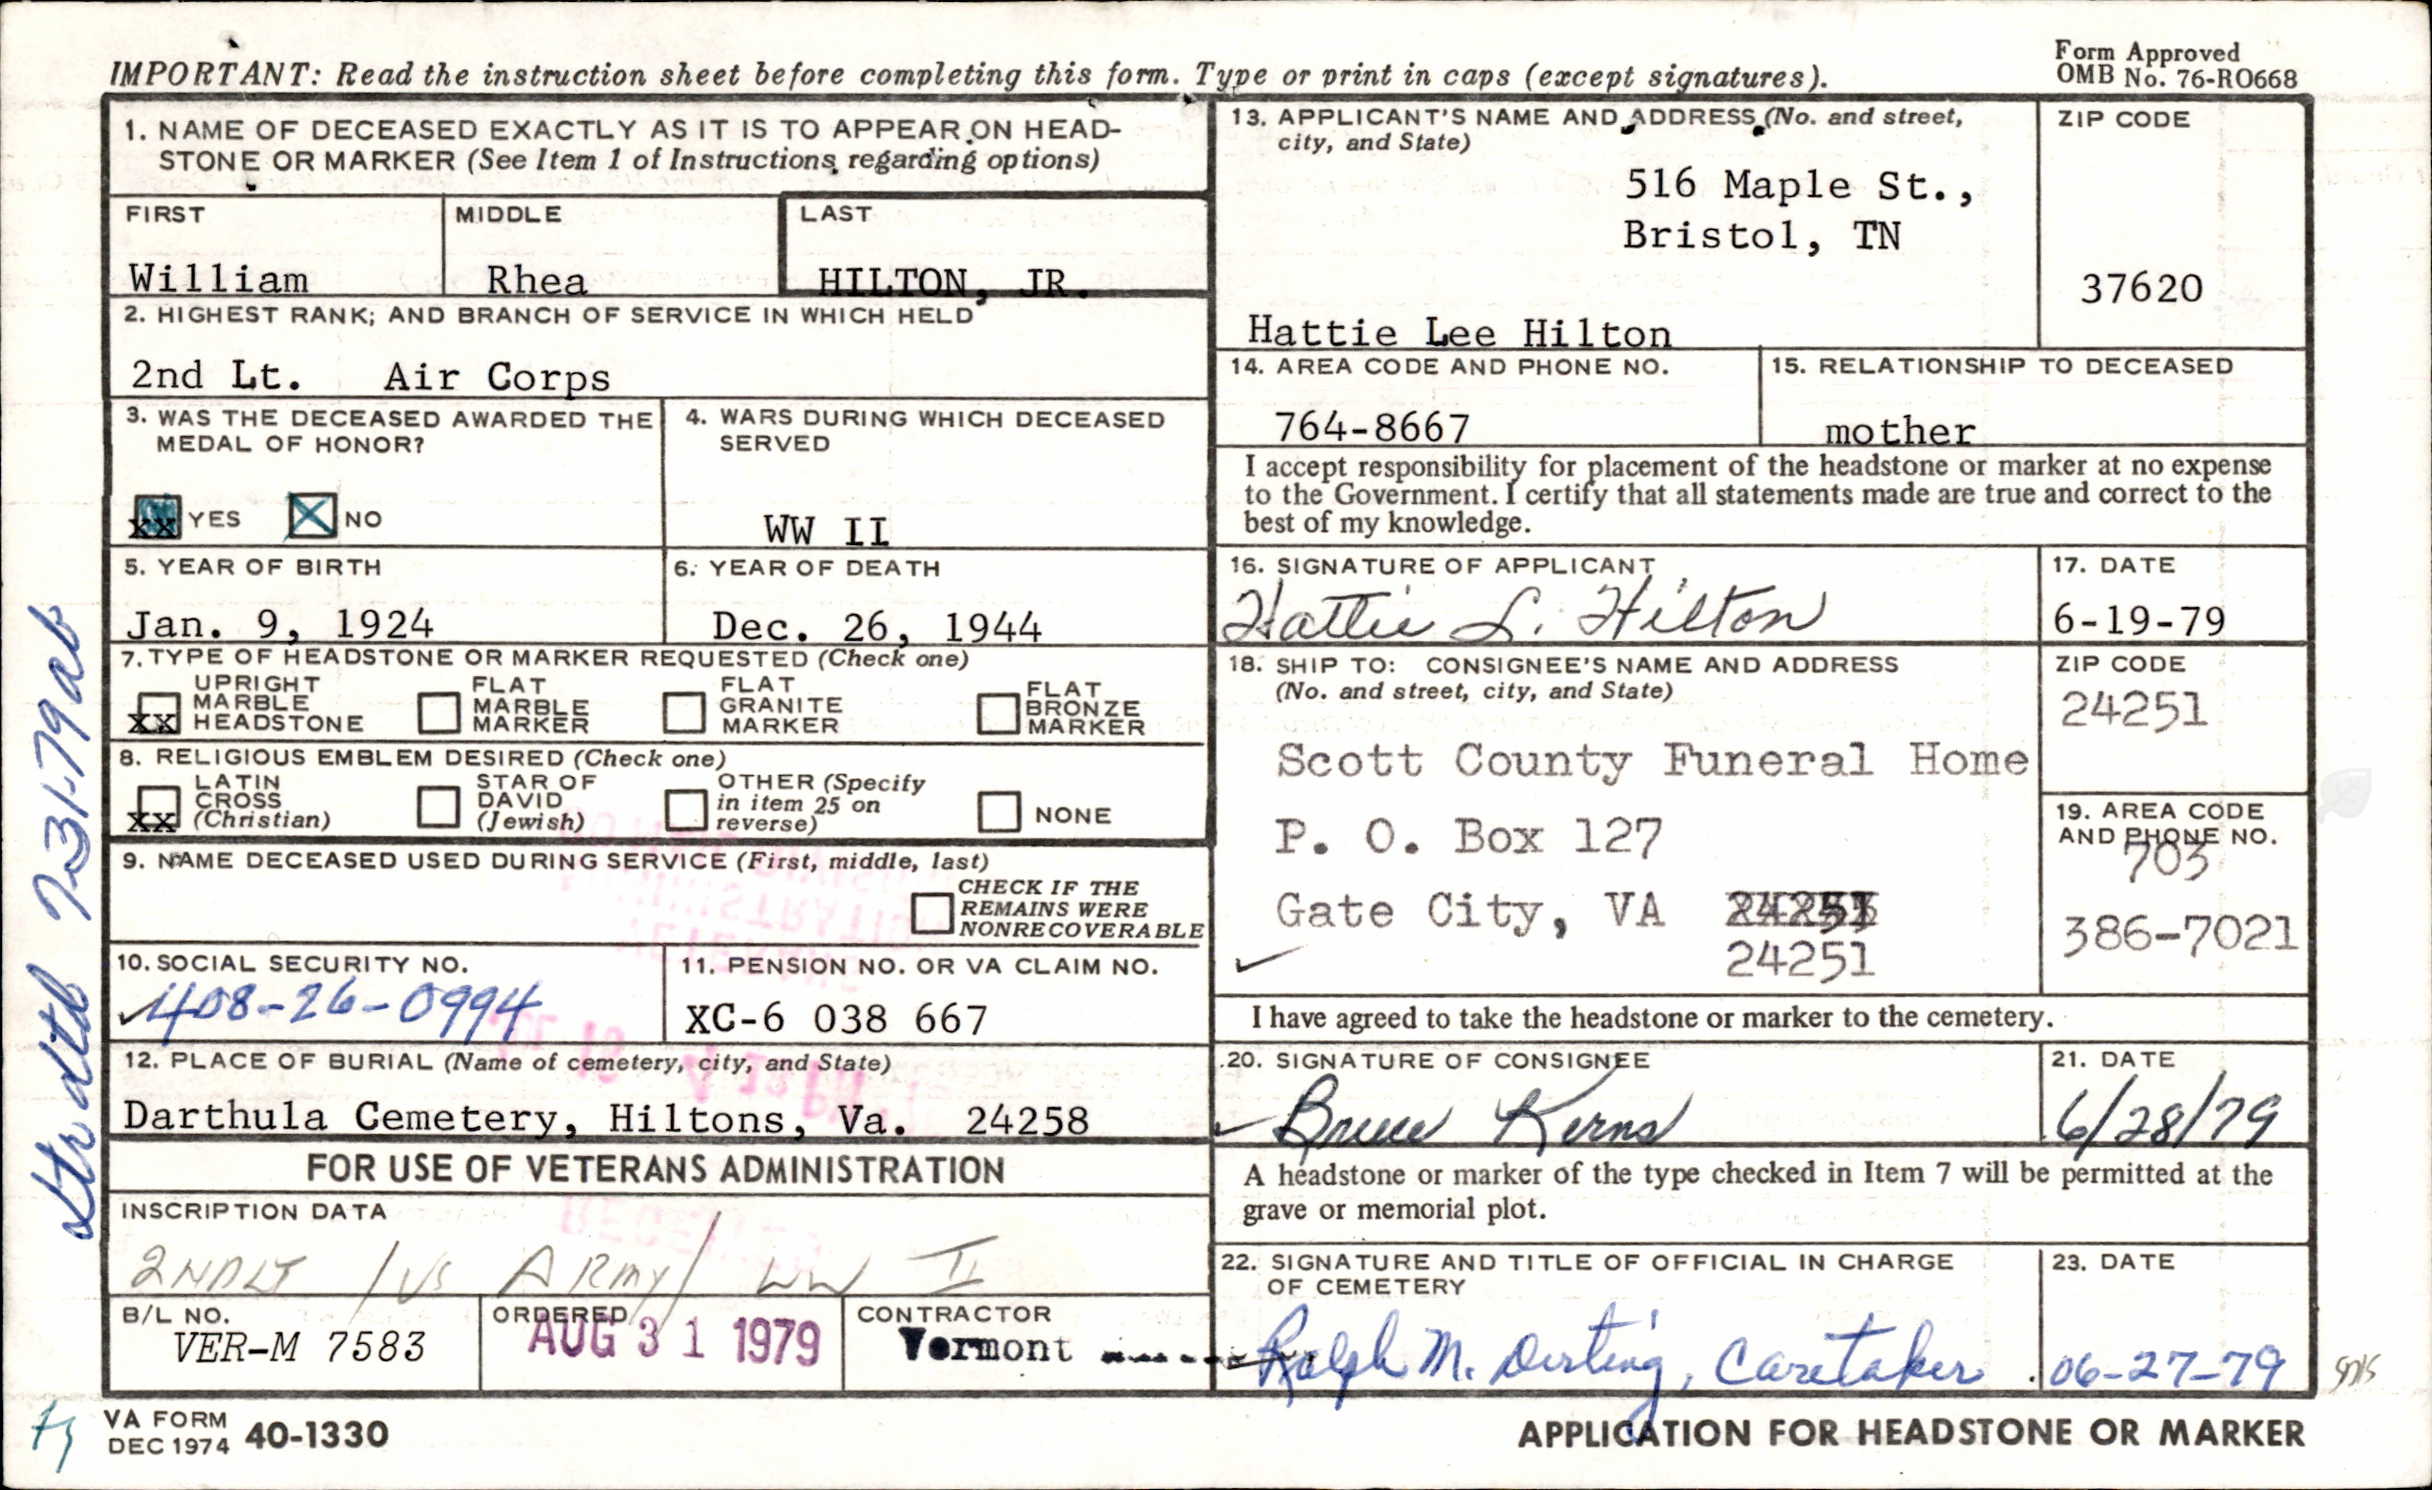 IMPORTANT: Read the instruction sheet before completing this form. Type or print in caps (except signatures).
Form Approved
OMB No. 76-RO668
1. NAME OF DECEASED EXACTLY AS IT IS TO APPEAR ON HEAD-
STONE OR MARKER (See Item 1 of Instructions regarding options)
FIRST MIDDLE LAST
William Rhea HILTON, JR.
2. HIGHEST RANK; AND BRANCH OF SERVICE IN WHICH HELD
2nd Lt. Air Corps
3. WAS THE DECEASED AWARDED THE
MEDAL OF HONOR?
xx YES NO
4. WARS DURING WHICH DECEASED
SERVED
WW II
5. YEAR OF BIRTH
Jan. 9, 1924
6. YEAR OF DEATH
Dec. 26, 1944
7. TYPE OF HEADSTONE OR MARKER REQUESTED (Check one)
xx UPRIGHT
MARBLE
HEADSTONE
FLAT
MARBLE
MARKER
FLAT
GRANITE
MARKER
FLAT
BRONZE
MARKER
8. RELIGIOUS EMBLEM DESIRED (Check one)
xx LATIN
CROSS
(Christian)
STAR OF
DAVID
(Jewish)
OTHER (Specify
in item 25 on
reverse)
NONE
9. NAME DECEASED USED DURING SERVICE (First, middle, last)
CHECK IF THE
REMAINS WERE
NONRECOVERABLE
10. SOCIAL SECURITY NO.
408-26-0994
11. PENSION NO. OR VA CLAIM NO.
XC-6 038 667
12. PLACE OF BURIAL (Name of cemetery, city, and State)
Darthula Cemetery, Hiltons, Va. 24258
FOR USE OF VETERANS ADMINISTRATION
INSCRIPTION DATA
2ND LT / US ARMY / WW II
B/L NO.
VER-M 7583
ORDERED
AUG 31 1979
CONTRACTOR
Vermont
VA FORM
DEC 1974 40-1330
13. APPLICANT'S NAME AND ADDRESS (No. and street,
city, and State)
516 Maple St.,
Bristol, TN
Hattie Lee Hilton
ZIP CODE
37620
14. AREA CODE AND PHONE NO.
764-8667
15. RELATIONSHIP TO DECEASED
mother
I accept responsibility for placement of the headstone or marker at no expense
to the Government. I certify that all statements made are true and correct to the
best of my knowledge.
16. SIGNATURE OF APPLICANT
Hattie L. Hilton
17. DATE
6-19-79
18. SHIP TO: CONSIGNEE'S NAME AND ADDRESS
(No. and street, city, and State)
Scott County Funeral Home
P. O. Box 127
Gate City, VA
24251
ZIP CODE
24251
19. AREA CODE
AND PHONE NO.
703
386-7021
I have agreed to take the headstone or marker to the cemetery.
20. SIGNATURE OF CONSIGNEE
Bruce Kerns
21. DATE
6/28/79
A headstone or marker of the type checked in Item 7 will be permitted at the
grave or memorial plot.
22. SIGNATURE AND TITLE OF OFFICIAL IN CHARGE
OF CEMETERY
Ralph M. Durting, Caretaker
23. DATE
06-27-79
APPLICATION FOR HEADSTONE OR MARKER
7-31-79